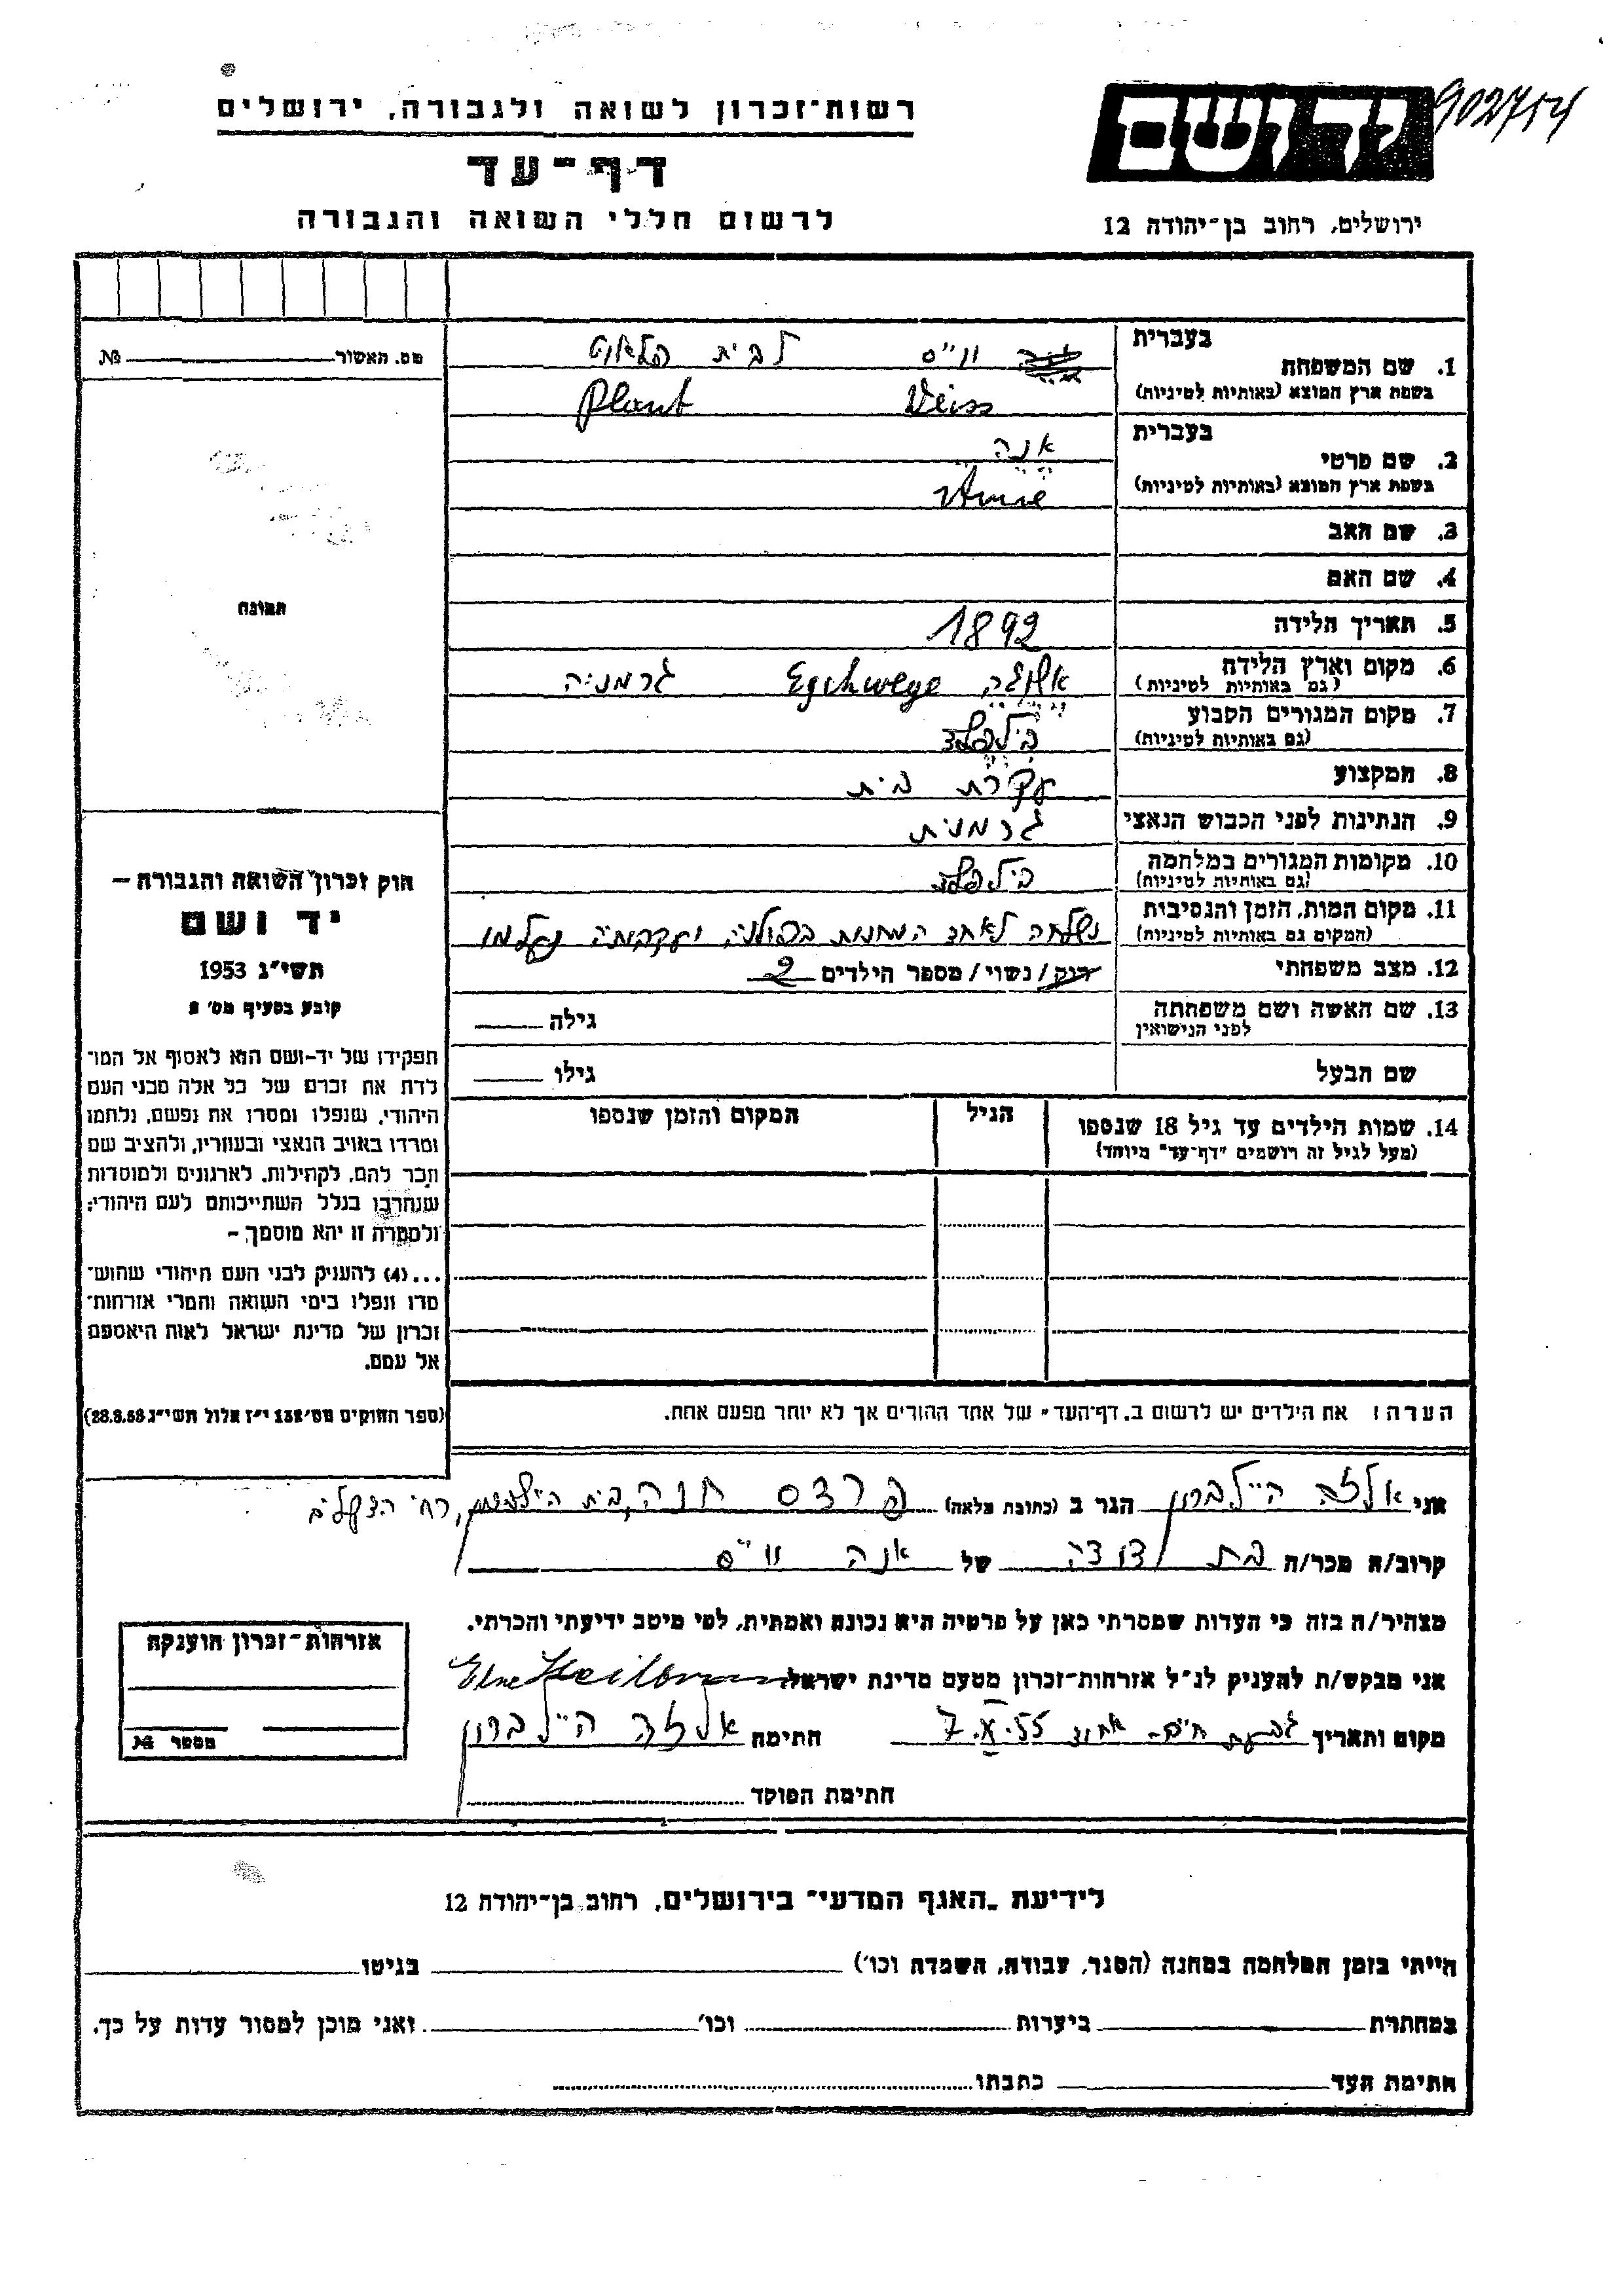 רשות־זכרון לשואה ולגבורה, ירושלים
דף־עד
לרשום חללי השואה והגבורה
יד ושם
902754
ירושלים, רחוב בן־יהודה 12
מס. תאשור №
בעברית
1. שם המשפחה וו״ס לבית פלאוט
בשפת ארץ המוצא (באותיות לטיניות) Weiss Plaut
בעברית
2. שם פרטי אנה
בשפת ארץ המוצא (באותיות לטיניות) Anne
3. שם האב
4. שם האם
5. תאריך הלידה 1892
6. מקום וארץ הלידה Eschwege גרמניה
(גם באותיות לטיניות)
7. מקום המגורים הקבוע בילפלד
(גם באותיות לטיניות)
8. המקצוע עקרת בית
9. הנתינות לפני הכבוש הנאצי גרמנית
10. מקומות המגורים במלחמה בילפלד
(גם באותיות לטיניות)
11. מקום המות, הזמן והנסיבות נשלחה לאחד המחנות בפולניה ועקבותיה נעלמו
(המקום גם באותיות לטיניות)
12. מצב משפחתי רוק/נשוי/מספר הילדים 2
13. שם האשה ושם משפחתה גילה
לפני הנישואין
שם הבעל גילו
14. שמות הילדים עד גיל 18 שנספו הגיל המקום והזמן שנספו
(מעל לגיל זה רושמים "דף־עד" מיוחד)
תמונה
חוק זכרון השואה והגבורה –
יד ושם
תשי״ג 1953
קובע בסעיף מס׳ 2
תפקידו של יד-ושם הוא לאסוף אל המו־
לדת את זכרם של כל אלה מבני העם
היהודי, שנפלו ומסרו את נפשם, נלחמו
ומרדו באויב הנאצי ובעוזריו, ולהציב שם
וזכר להם, לקהילות, לארגונים ולמוסדות
שנחרבו בגלל השתייכותם לעם היהודי;
ולמטרה זו יהא מוסמך –
...(4) להעניק לבני העם היהודי שהוש־
מדו ונפלו בימי השואה והמרי אזרחות־
זכרון של מדינת ישראל לאות היאספם
אל עמם.
(ספר החוקים מס׳ 132 י״ז אלול תשי״ג 28.8.53)
הערה: את הילדים יש לרשום ב„דף־העד" של אחד ההורים אך לא יותר מפעם אחת.
אני אלזה היילברון הגר ב (כתובת מלאה) פרדס חנה, בית
קרוב/ה מכר/ה בת דודה של אנה וו״ס
מצהיר/ה בזה כי העדות שמסרתי כאן על פרטיה היא נכונה ואמתית, לפי מיטב ידיעתי והכרתי.
אני מבקש/ת להעניק לנ״ל אזרחות־זכרון מטעם מדינת ישראל. Else Heilbrunn
מקום ותאריך גבעת חיים- אחוד 7.X.55 חתימה אלזה היילברון
חתימת הפוקד
אזרחות־זכרון הוענקה
מספר №
לידיעת „האגף המדעי" בירושלים, רחוב בן־יהודה 12
הייתי בזמן המלחמה במחנה (הסגר, עבודה, השמדה וכו׳) בגיטו
במחתרת ביערות וכו׳ ואני מוכן למסור עדות על כך.
חתימת העד כתבתו